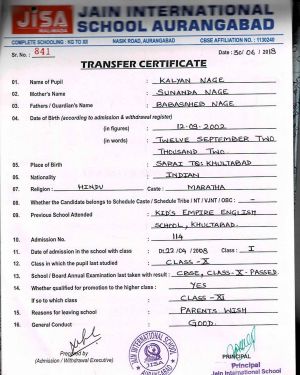 JiSA
JAIN INTERNATIONAL
SCHOOL AURANGABAD
COMPLETE SCHOOLING : KG TO XII NASIK ROAD, AURANGABAD CBSE AFFILIATION NO. : 1130240
Sr. No. : 841 Date : 30/06/2018
TRANSFER CERTIFICATE
01. Name of Pupil : KALYAN NAGE
02. Mother's Name : SUNANDA NAGE
03. Fathers / Guardian's Name : BABASAHEB NAGE
04. Date of Birth (according to admission & withdrawal register)
(in figures) : 12-09-2002
(in words) : TWELVE SEPTEMBER TWO
THOUSAND TWO
05. Place of Birth : SARAI TQ: KHULTABAD
06. Nationality : INDIAN
07. Religion : HINDU Caste : MARATHA
08. Whether the Candidate belongs to Schedule Caste / Schedule Tribe / NT / VJNT / OBC : -
09. Previous School Attended : KID'S EMPIRE ENGLISH
SCHOOL, KHULTABAD.
10. Admission No. : 114
11. Date of admission in the school with class : Dt. /04/2008 Class : I
12. Class in which the pupil last studied : CLASS-X
13. School / Board Annual Examination last taken with result : CBSE, CLASS-X-PASSED
14. Whether qualified for promotion to the higher class : YES
If so to which class : CLASS-XI
15. Reasons for leaving school : PARENTS WISH
16. General Conduct : GOOD.
Prepared by
(Admission / Withdrawal Executive)
JAIN INTERNATIONAL SCHOOL
JISA
PRINCIPAL
Principal
Jain International School